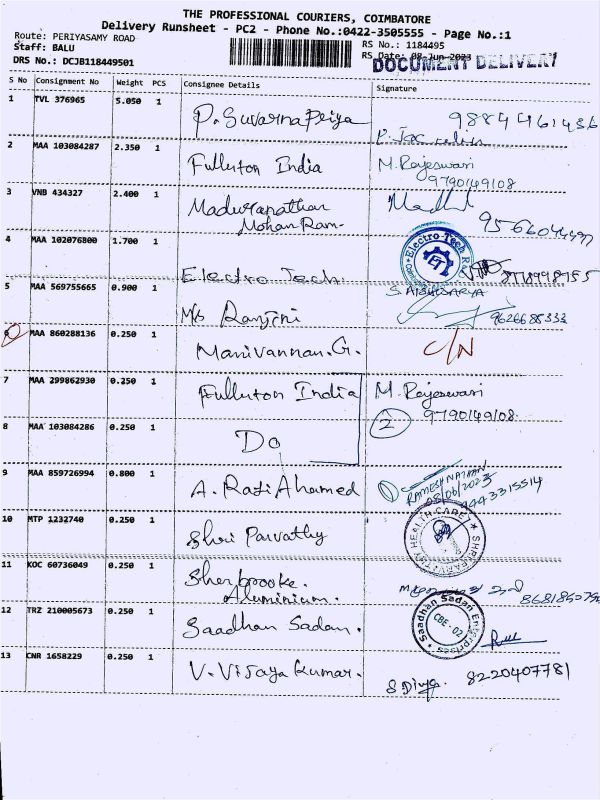 THE PROFESSIONAL COURIERS, COIMBATORE
Delivery Runsheet - PC2 - Phone No.:0422-3505555 - Page No.:1
Route: PERIYASAMY ROAD
Staff: BALU
DRS No.: DCJB118449501
RS No.: 1184495
RS Date: 08-Jun-2023
DOCUMENT DELIVERY
S No Consignment No Weight PCS Consignee Details Signature
1 TVL 376965 5.050 1 P. Suvarna Priya 9884461436
2 MAA 103084287 2.350 1 Fullerton India M. Rajeswari
9790149108
3 VNB 434327 2.400 1 Maduranathan
Mohan Ram-
4 MAA 102076800 1.700 1 Electro Tech
Electro-Tech
ET
5 MAA 569755665 0.900 1 M/s Ranjini S. AISHWARYA
9626685333
6 MAA 860288136 0.250 1 Manivannan.G. C/N
7 MAA 299862930 0.250 1 Fullerton India M. Rajeswari
9790149108
2
8 MAA 103084286 0.250 1 Do
9 MAA 859726994 0.800 1 A. Rafi Ahamed RAMESH NATHAN
08/06/2023
9443315514
10 MTP 1232740 0.250 1 Shri Parvathy
SHRI PARVATHY HEALTH CARE
11 KOC 60736049 0.250 1 Sherbrooke.
Aluminium.
12 TRZ 210005673 0.250 1 Saadhan Sadan.
Saadhan Sadan Enterprises
CBE-02
13 CNR 1658229 0.250 1 V. Vijaya Kumar. S Divya. 8220407781